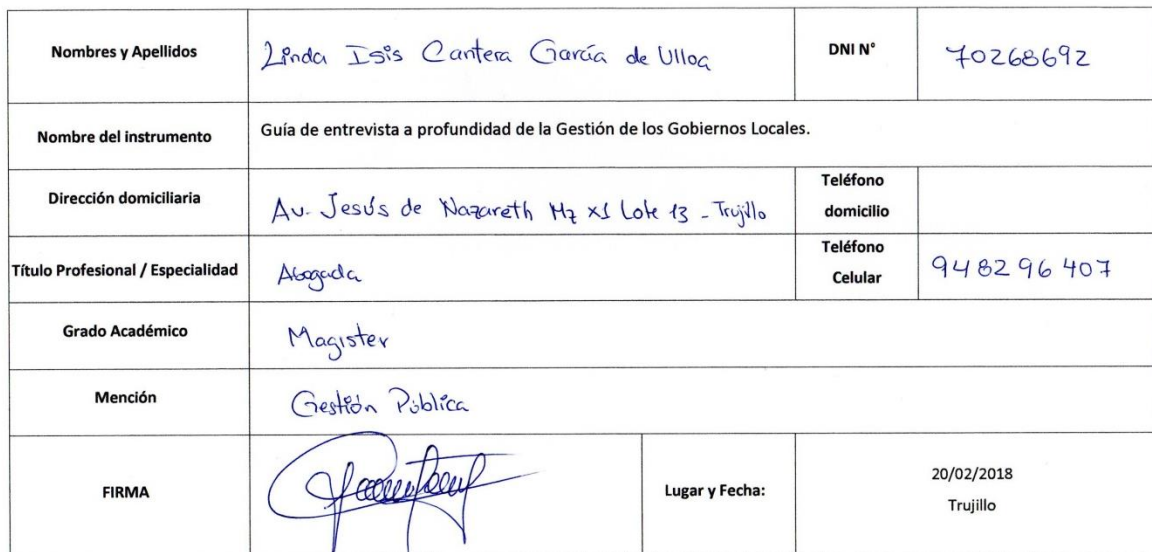 Nombres y Apellidos Linda Isis Cantera García de Ulloa DNI N° 70268692
Nombre del instrumento Guía de entrevista a profundidad de la Gestión de los Gobiernos Locales.
Dirección domiciliaria Av. Jesús de Nazareth Mz X1 Lote 13 - Trujillo Teléfono
domicilio
Título Profesional / Especialidad Abogada Teléfono
Celular 948296407
Grado Académico Magister
Mención Gestión Pública
FIRMA Lugar y Fecha: 20/02/2018
Trujillo